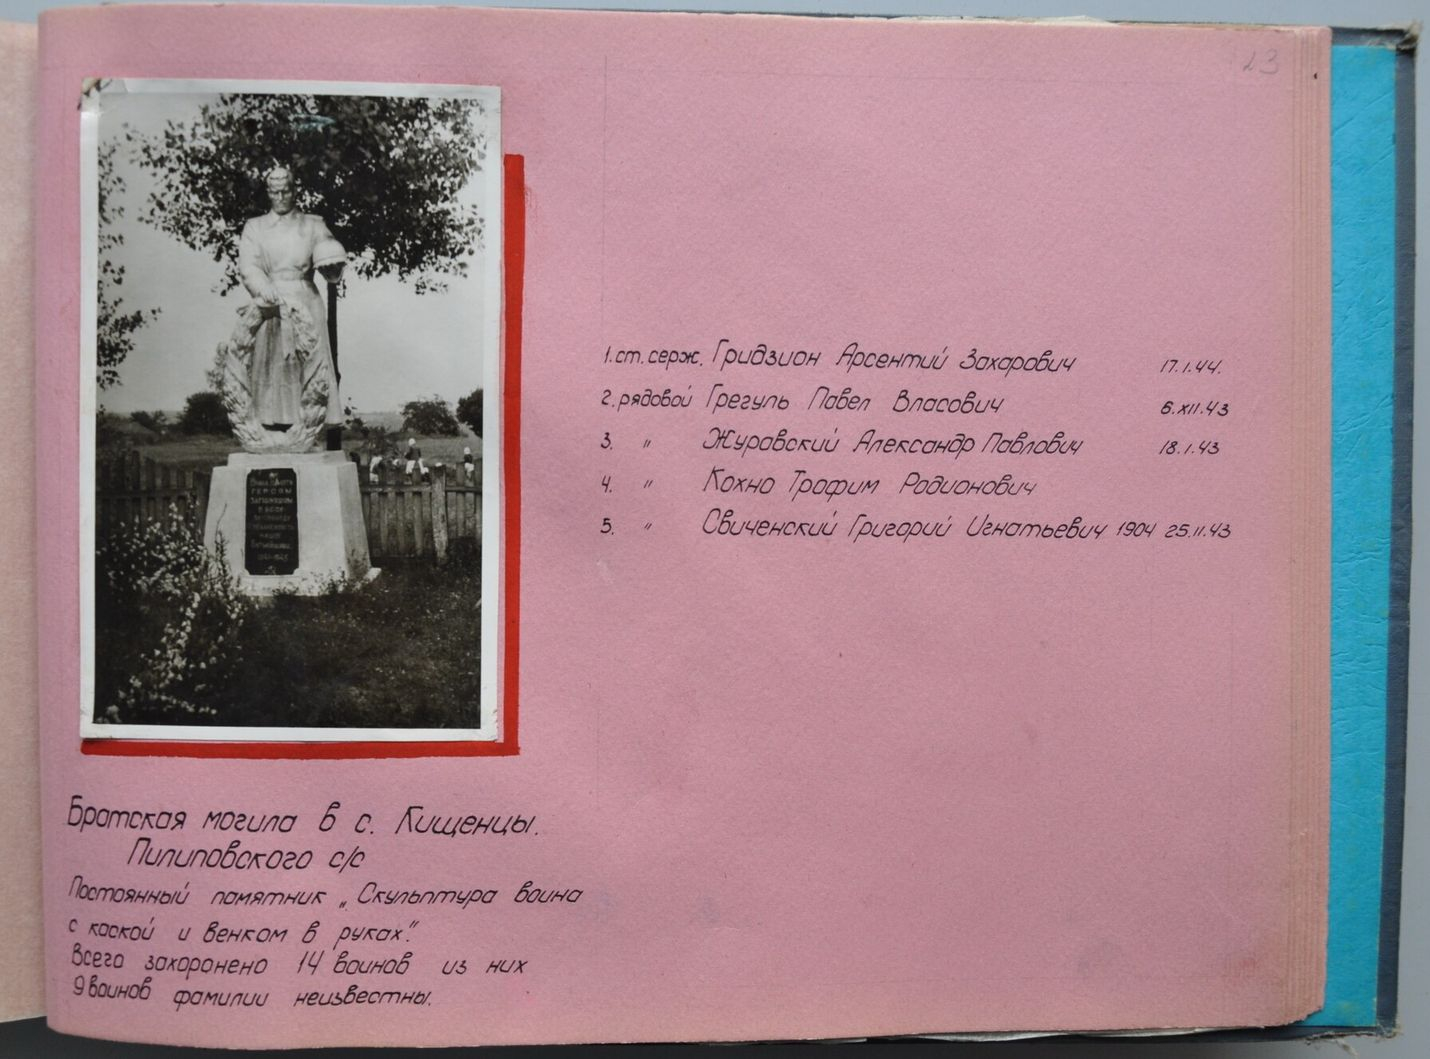 23
1. ст. серж. Гридзион Арсентий Захарович 17.1.44.
2. рядовой Грегуль Павел Власович 6.XII.43
3. " Журавский Александр Павлович 18.1.43
4. " Кохно Трофим Родионович
5. " Свиченский Григорий Игнатьевич 1904 25.11.43
ГЕРОЯМ
1941-1945
Братская могила в с. Кищенцы.
Пилиповского с/с
Постоянный памятник „Скульптура воина
с каской и венком в руках".
Всего захоронено 14 воинов из них
9 воинов фамилии неизвестны.